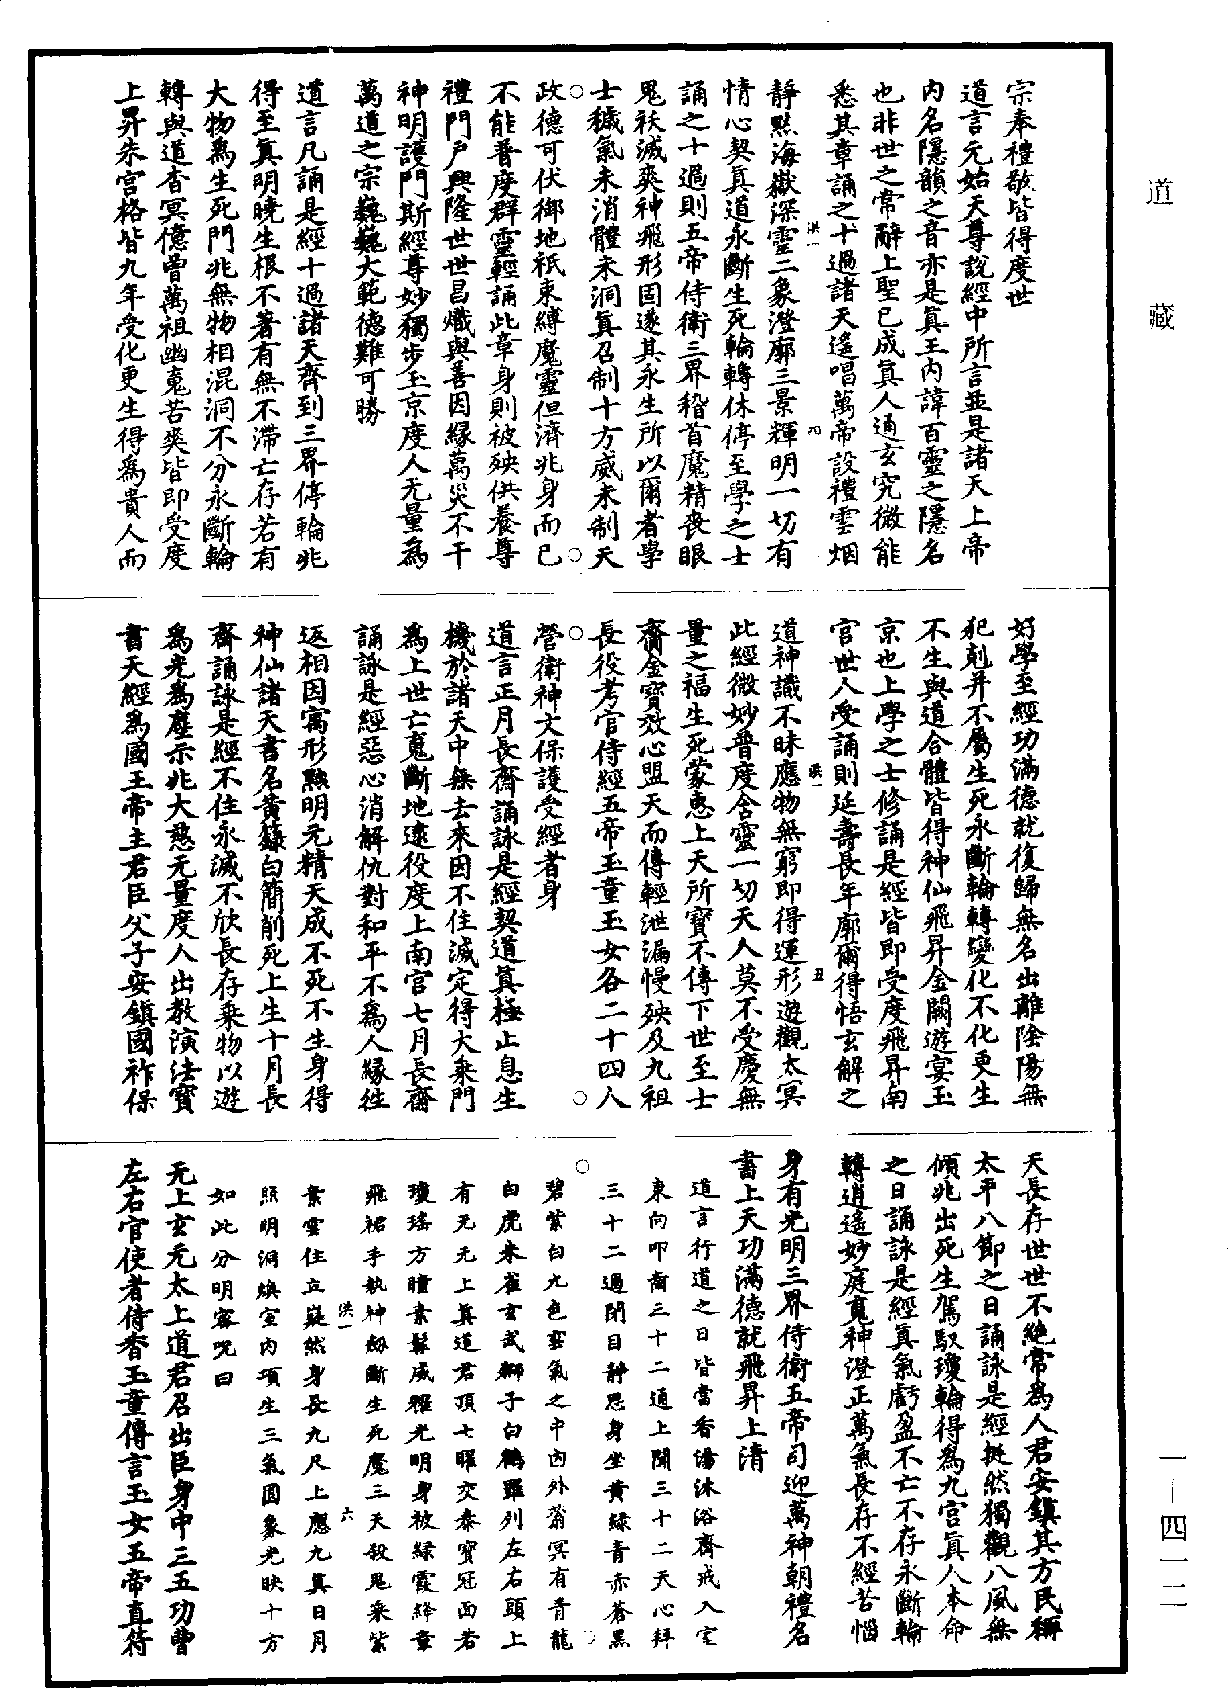 道藏
宗奉禮敬皆得度世
道言元始天尊說經中所言並是諸天上帝
內名隱韻之音亦是眞王內諱百靈之隱名
也非世之常辭上聖已成眞人通玄究微能
悉其章誦之十過諸天遙唱萬帝設禮雲烟
靜默海嶽深靈二象澄廓三景輝明一切有
洪一 四
情心契眞道永斷生死輪轉休停至學之士
誦之十過則五帝侍衛三界稽首魔精喪眼
鬼祅滅爽神飛形固遂其永生所以爾者學
士穢氣未消體未洞眞召制十方威未制天
政德可伏御地祇束縛魔靈但濟兆身而已
不能普度群靈輕誦此章身則被殃供養尊
禮門戶興隆世世昌熾與善因緣萬災不干
神明護門斯經尊妙獨步玉京度人无量爲
萬道之宗巍巍大範德難可勝
道言凡誦是經十過諸天齊到三界停輪兆
得至眞明曉生根不著有無不滯亡存若有
大物爲生死門兆無物相混洞不分永斷輪
轉與道杳冥億曾萬祖幽䰟苦爽皆即受度
上昇朱宮格皆九年受化更生得爲貴人而
好學至經功滿德就復歸無名出離陰陽無
犯剋并不屬生死永斷輪轉變化不化更生
不生與道合體皆得神仙飛昇金闕遊宴玉
京也上學之士修誦是經皆即受度飛昇南
宮世人受誦則延壽長年廓爾得悟玄解之
道神識不昧應物無窮即得運形遊觀太冥
洪一 五
此經微妙普度含靈一切天人莫不受慶無
量之福生死蒙惠上天所寶不傳下世至士
齎金寶效心盟天而傳輕泄漏慢殃及九祖
長役考官侍經五帝玉童玉女各二十四人
營衛神文保護受經者身
道言正月長齋誦詠是經契道眞極止息生
機於諸天中無去來因不住滅定得大乘門
爲上世亡䰟斷地遠役度上南宮七月長齋
誦詠是經惡心消解仇對和平不爲人緣往
返相因寓形㸃明元精天成不死不生身得
神仙諸天書名黃籙白簡削死上生十月長
齋誦詠是經不住永滅不欣長存乘物以遊
爲光爲塵示兆大慈无量度人出教演法寶
書天經爲國王帝主君臣父子安鎮國祚保
天長存世世不絶常爲人君安鎮其方民稱
太平八節之日誦詠是經挺然獨觀八風無
傾兆出死生駕馭瓊輪得爲九宮眞人本命
之日誦詠是經眞氣虧盈不亡不存永斷輪
轉逍遙妙庭䰟神澄正萬氣長存不經苦惱
身有光明三界侍衛五帝司迎萬神朝禮名
書上天功滿德就飛昇上清
道言行道之日皆當香湯沐浴齋戒入室
東向叩齒三十二通上聞三十二天心拜
三十二過閉目靜思身坐黃綠青赤蒼黑
碧紫白九色雲氣之中內外蓊冥有青龍
白虎朱雀玄武獅子白鶴羅列左右頭上
有无无上眞道君頂七曜交泰寶冠面若
瓊瑤方瞳素鬢威耀光明身被綠霞絳章
飛裙手執神劒斷生死魔三天殺鬼乘紫
洪一 六
素雲住立嶷然身長九尺上應九眞日月
照明洞煥室內項生三氣圓象光映十方
如此分明密呪曰
无上玄元太上道君召出臣身中三五功曹
左右官使者侍香玉童傳言玉女五帝直符
一—四一二